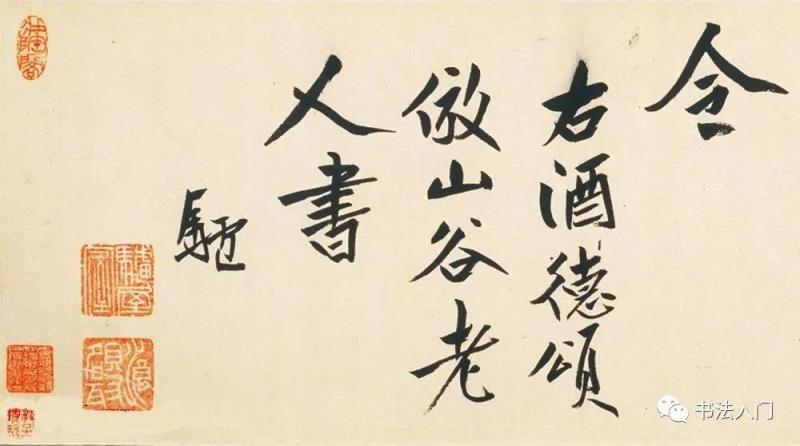 令
右酒德頌
倣山谷老
人書
书法入门